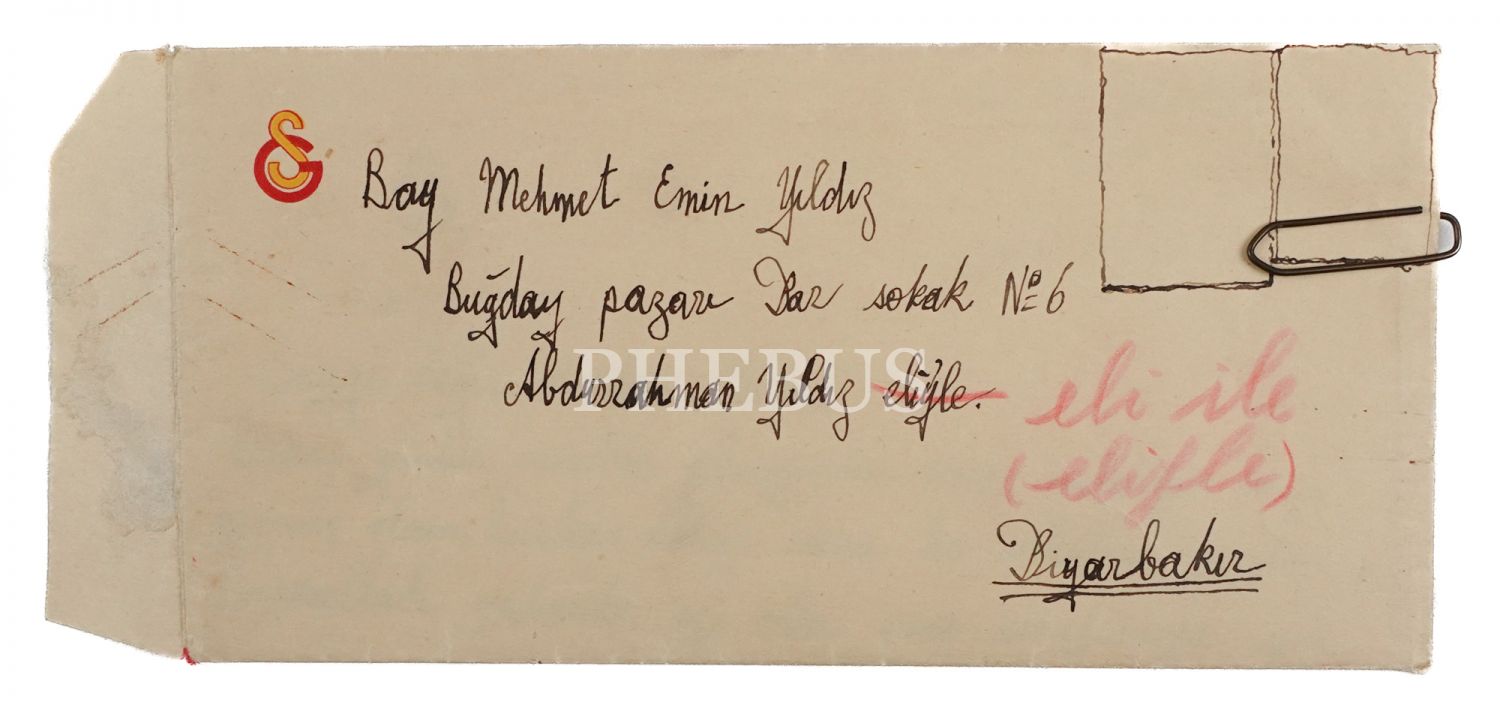 GS
Bay Mehmet Emin Yıldız
Buğday pazarı Dar sokak Nº 6
Abdurrahman Yıldız eliyle.
eli ile
(eliyle)
Diyarbakır
PHEBUS